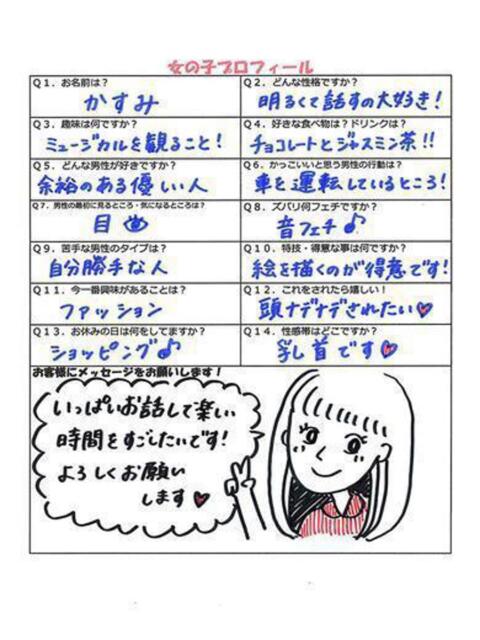 女の子プロフィール
Q1. お名前は?
かすみ
Q2. どんな性格ですか?
明るくて話すの大好き!
Q3. 趣味は何ですか?
ミュージカルを観ること!
Q4. 好きな食べ物は?ドリンクは?
チョコレートとジャスミン茶!!
Q5. どんな男性が好きですか?
余裕のある優しい人
Q6. かっこいいと思う男性の行動は?
車を運転しているところ!
Q7. 男性の最初に見るところ・気になるところは?
目
Q8. ズバリ何フェチですか?
音フェチ♪
Q9. 苦手な男性のタイプは?
自分勝手な人
Q10. 特技・得意な事は何ですか?
絵を描くのが得意です!
Q11. 今一番興味があることは?
ファッション
Q12. これをされたら嬉しい!
頭ナデナデされたい♥
Q13. お休みの日は何をしてますか?
ショッピング♪
Q14. 性感帯はどこですか?
乳首です♥
お客様にメッセージをお願いします!
いっぱいお話して楽しい
時間をすごしたいです!
よろしくお願い
します♥